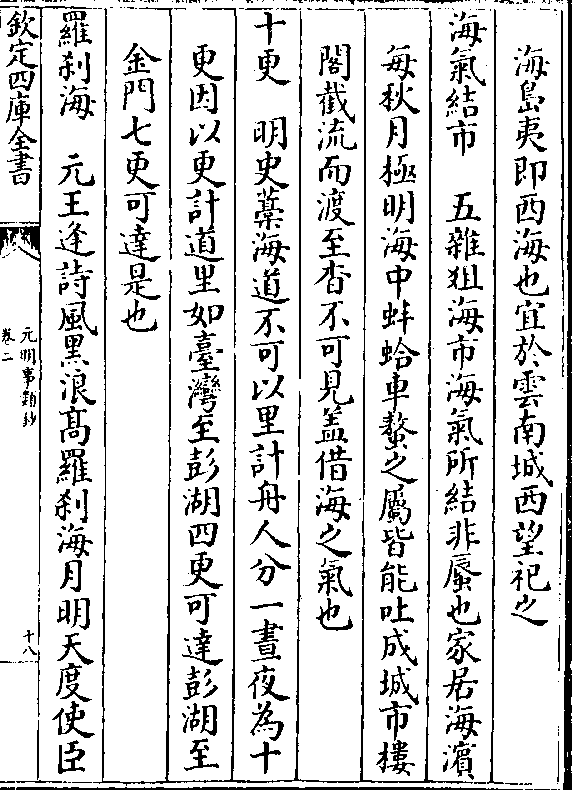 海島夷即西海也宜於雲南城西望祀之
海氣結市　五雜狙海市海氣所結非蜃也家居海濱
每秋月極明海中蚌蛤車螯之屬皆能吐成城市樓
閣截流而渡至杳不可見盖借海之氣也
十更　明史藁海道不可以里計舟人分一晝夜為十
更因以更計道里如臺灣至彭湖四更可達彭湖至
金門七更可達是也
羅刹海　元王逢詩風黒浪髙羅刹海月明天度使臣
欽定四庫全書
元明事類鈔
卷二
十八